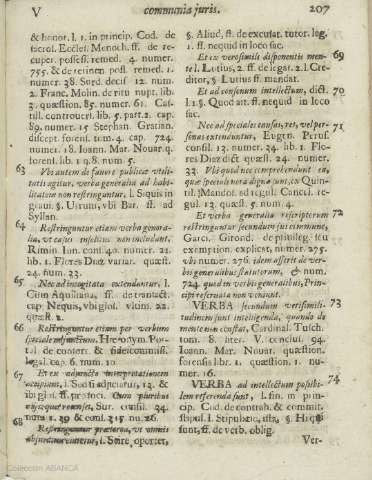 V communia juris. 207
& honor. l. 1. in princip. Cod. de
sacrosl. Eccles. Menoch. ff. de re-
cuper. possess. remed. 4. numer.
755. & de retinen. poss. remed. 1.
numer. 38. Surd. decis. 12. num.
2. Franc. Molin. de ritu nupt. lib.
3. quæstion. 85. numer. 61. Cas-
till. controuers. lib. 5. part. 2. cap.
89. numer. 15. Stephan. Gratian.
discept. forens. tom. 4. cap. 724.
numer. 18. Ioann. Mar. Nouar. q.
forens. lib. 1 q. 8. num. 5.
63 Vbi autem de fauore publicæ vtili-
tatis agitur, verba generalia ad habi-
litatem non restringuntur, l. Siquis in
graui. §. Vtrum, vbi Bar. ff. ad
Syllan.
64 Restringuntur etiam verba genera-
lia, vt casus insolitus non includant,
Rimin. Iun. cons. 40. numer. 21.
lib. 1. Flores Diaz variar. quæst.
24. num. 33.
65. Nec ad incogitata extenduntur, l.
Cum Aquiliana, ff. de transact.
cap. Nequis, vbi glos. vlum. 22.
quæst. 2.
66 Restringuntur etiam per verbum
speciale
legal. cap. 6. num. 10
67 Et ex adjuncto interpretationem
68
§. Aliud, ff. de excusat. tutor. leg.
1. ff. nequid in loco sac.
Et ex verosimili disponentis men- 69
te l. Lutius, 2. ff. de legat. 2. l. Cre-
ditor, § Lutius ff. mandat.
Et ad consonum intellectum, dict. 70
l. 1. §. Quod ait. ff. nequid in loco
sac.
Nec ad speciales causas, res, vel per- 71
sonas extenduntur, Eugen. Perus.
consil. 13. numer. 34. lib. 1. Flo-
res Diaz dict quæst. 24. numer.
33. Vbi quod nec comprehendunt ea,
quæ speciali nota digna sunt, ex Quin-
til. Mandos. ad regul. Cancel. re-
gul. 13. quæst. 5 num. 4.
Et verba generalia rescriptorum 72
restringuntur secundum jus commune,
Garci, Girond. de priuileg. seu
exemption. explicet, numer. 275.
vbi numer. 276. idem asserit de ver-
bis generalibus statutorum, & num.
724. quod in verbis generalibus, Prin-
cipis reseruata non veniunt.
VERBA secundum verisimili- 73
tudinem sunt intelligenda, quando de
mente non constat, Cardinal. Tusch.
tom. 8. liter. V. conclus. 94.
Ioann. Mar. Nouar. quæstion.
forensis lib. 1. quæstion. 1. nu-
mer. 16.
VERBA ad intellectum possibi- 74
lem referenda sunt, l. fin. in prin-
cip. Cod. de contrah. & commit.
stipul. l. Stipulatio, ista, §. Hi qui
sunt, ff. de verb. oblig.
Ver-
Colección ABANCA